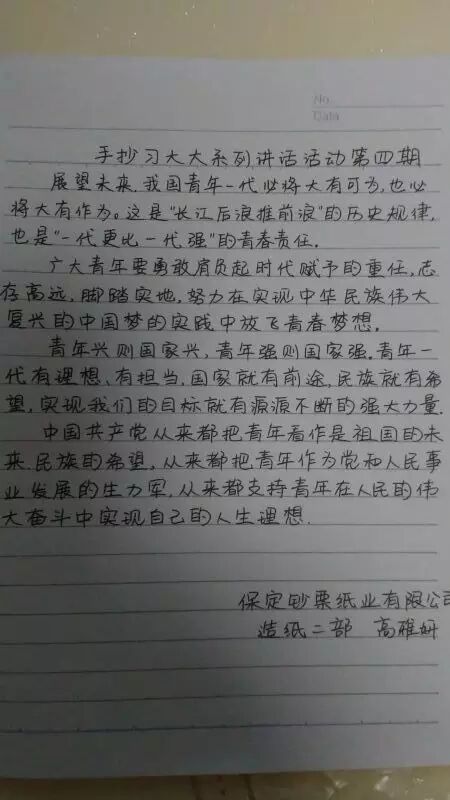 No.
Date
手抄习大大系列讲话活动第四期
展望未来,我国青年一代必将大有可为,也必
将大有作为。这是"长江后浪推前浪"的历史规律,
也是"一代更比一代强"的青春责任.
广大青年要勇敢肩负起时代赋予的重任,志
存高远,脚踏实地,努力在实现中华民族伟大
复兴的中国梦的实践中放飞青春梦想.
青年兴则国家兴,青年强则国家强.青年一
代有理想、有担当,国家就有前途,民族就有希
望,实现我们的目标就有源源不断的强大力量.
中国共产党从来都把青年看作是祖国的未
来.民族的希望,从来都把青年作为党和人民事
业发展的生力军,从来都支持青年在人民的伟
大奋斗中实现自己的人生理想.
保定钞票纸业有限公司
造纸二部 高雅妍